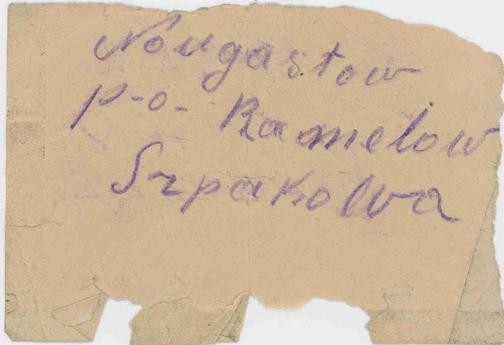 Nougastow
p-o- Ramelow
Szpakowa